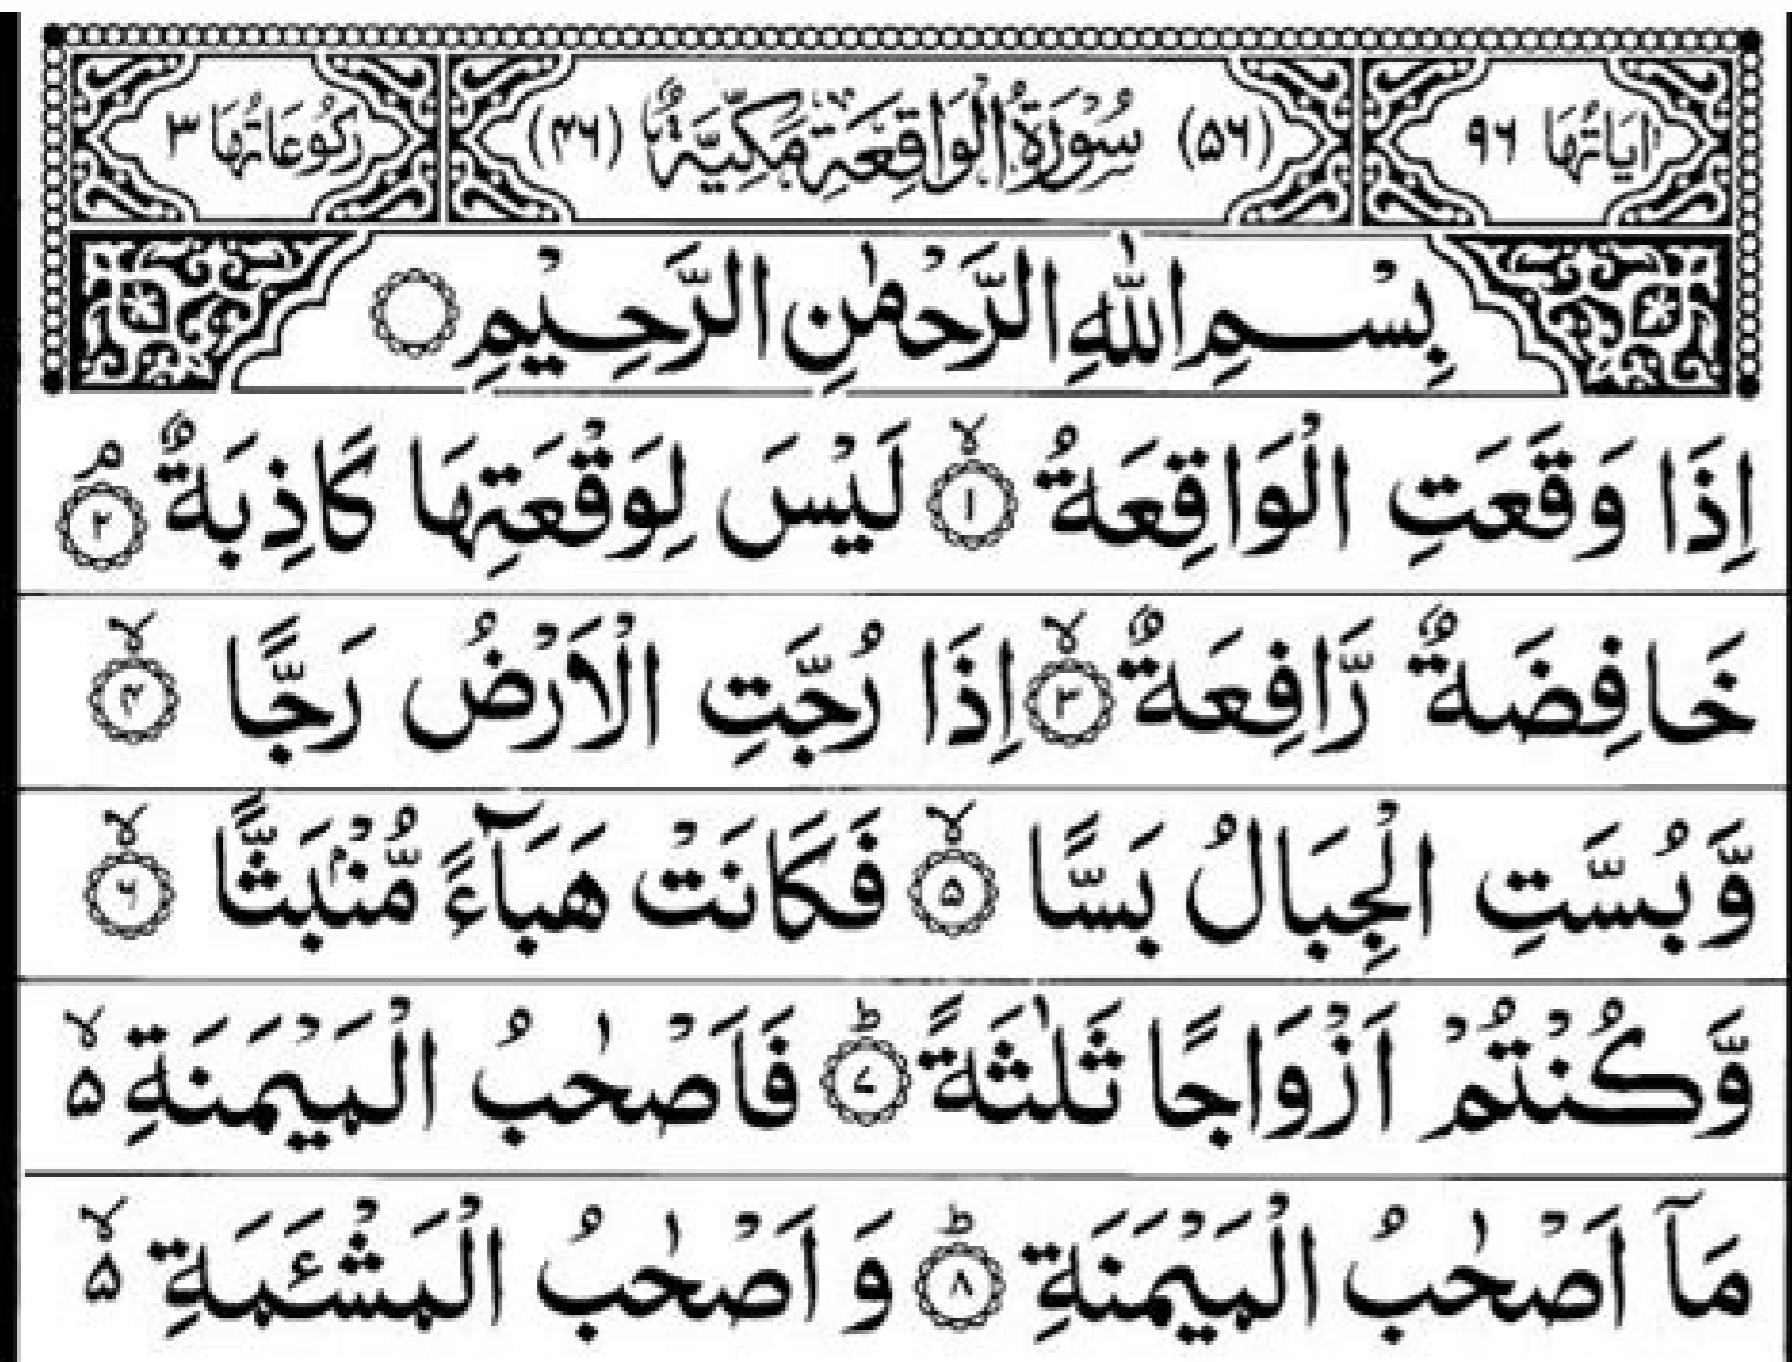 اٰيَاتُهَا ٩٦ (٥٦) سُوْرَةُ الْوَاقِعَةِ مَكِّيَّةٌ (٤٦) رُكُوْعَاتُهَا ٣
بِسْمِ اللّٰهِ الرَّحْمٰنِ الرَّحِيْمِ
اِذَا وَقَعَتِ الْوَاقِعَةُ ۙ‏ ﴿۱﴾ لَيْسَ لِوَقْعَتِهَا كَاذِبَةٌ ۘ‏ ﴿۲﴾
خَافِضَةٌ رَّافِعَةٌ ۙ‏ ﴿۳﴾ اِذَا رُجَّتِ الْاَرْضُ رَجًّا ۙ‏ ﴿۴﴾
وَّبُسَّتِ الْجِبَالُ بَسًّا ۙ‏ ﴿۵﴾ فَكَانَتْ هَبَآءً مُّنْۢبَثًّا ۙ‏ ﴿۶﴾
وَّكُنْتُمْ اَزْوَاجًا ثَلٰثَةً ؕ‏ ﴿۷﴾ فَاَصْحٰبُ الْمَيْمَنَةِ ۙ۵
مَاۤ اَصْحٰبُ الْمَيْمَنَةِ ؕ‏ ﴿۸﴾ وَ اَصْحٰبُ الْمَشْـَٔمَةِ ۙ۵